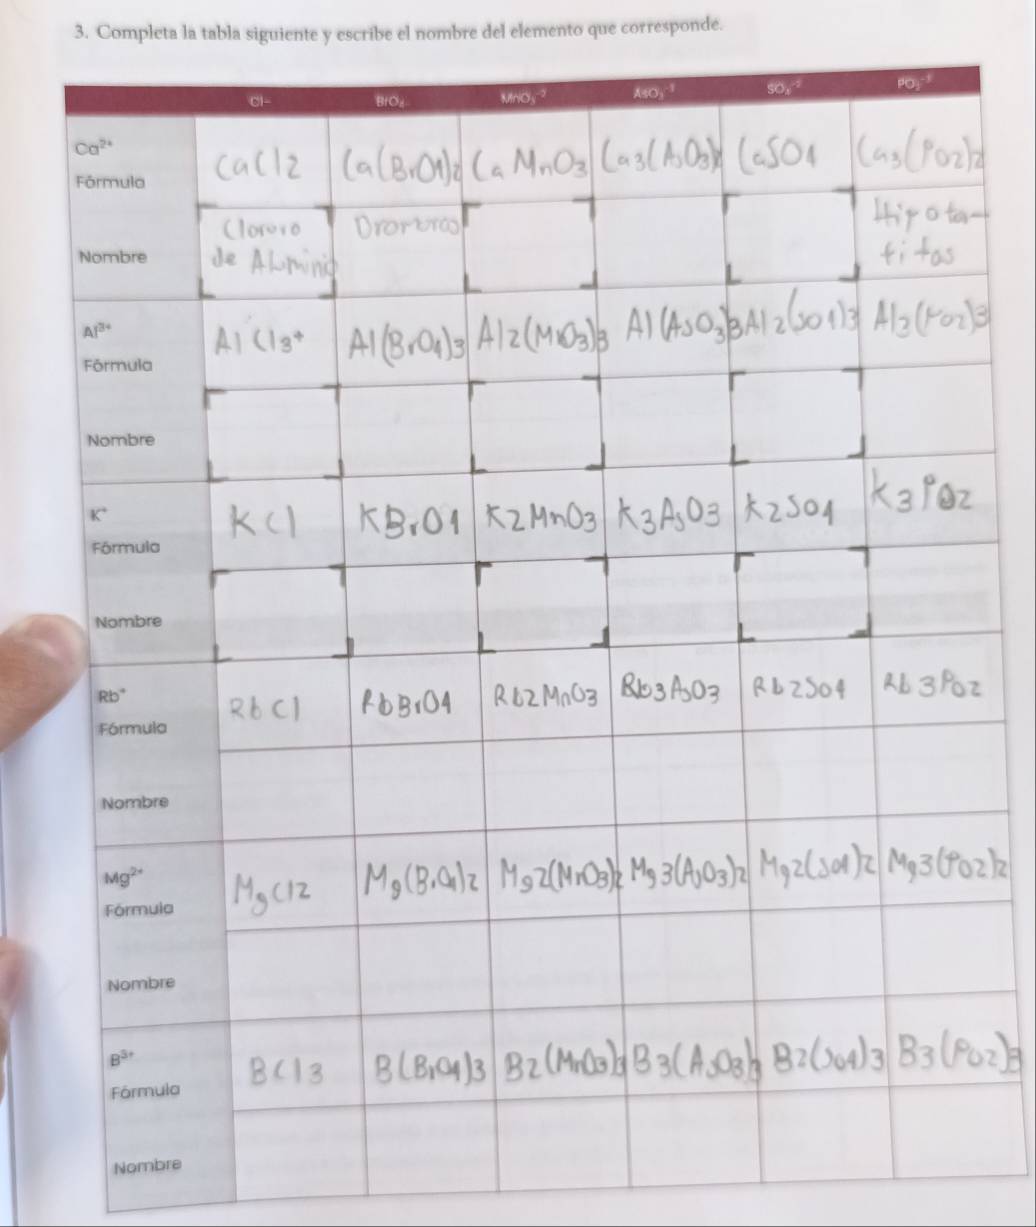 3. Completa la tabla siguiente y escribe el nombre del elemento que corresponde.
Cl- BrO₄ MnO₃⁻² AsO₃⁻³ SO₄⁻² PO₂⁻³
Ca²⁺
Fórmula CaCl2 Ca(BrO4)2 CaMnO3 Ca3(AsO3)2 CaSO4 Ca3(PO2)2
Nombre Clororo Hipota-
de Aluminio fitas
Al³⁺
Fórmula AlCl3+ Al(BrO4)3 Al2(MnO3)3 Al(AsO3)3 Al2(SO4)3 Al2(PO2)3
Nombre
K⁺
Fórmula KCl KBrO4 K2MnO3 K3AsO3 K2SO4 K3PO2
Nombre
Rb⁺
Fórmula RbCl RbBrO4 Rb2MnO3 Rb3AsO3 Rb2SO4 Rb3PO2
Nombre
Mg²⁺
Fórmula MgCl2 Mg(BrO4)2 Mg2(MnO3)2 Mg3(AsO3)2 Mg2(SO4)2 Mg3(PO2)2
Nombre
B³⁺
Fórmula BCl3 B(BrO4)3 B2(MnO3)3 B3(AsO3)3 B2(SO4)3 B3(PO2)3
Nombre